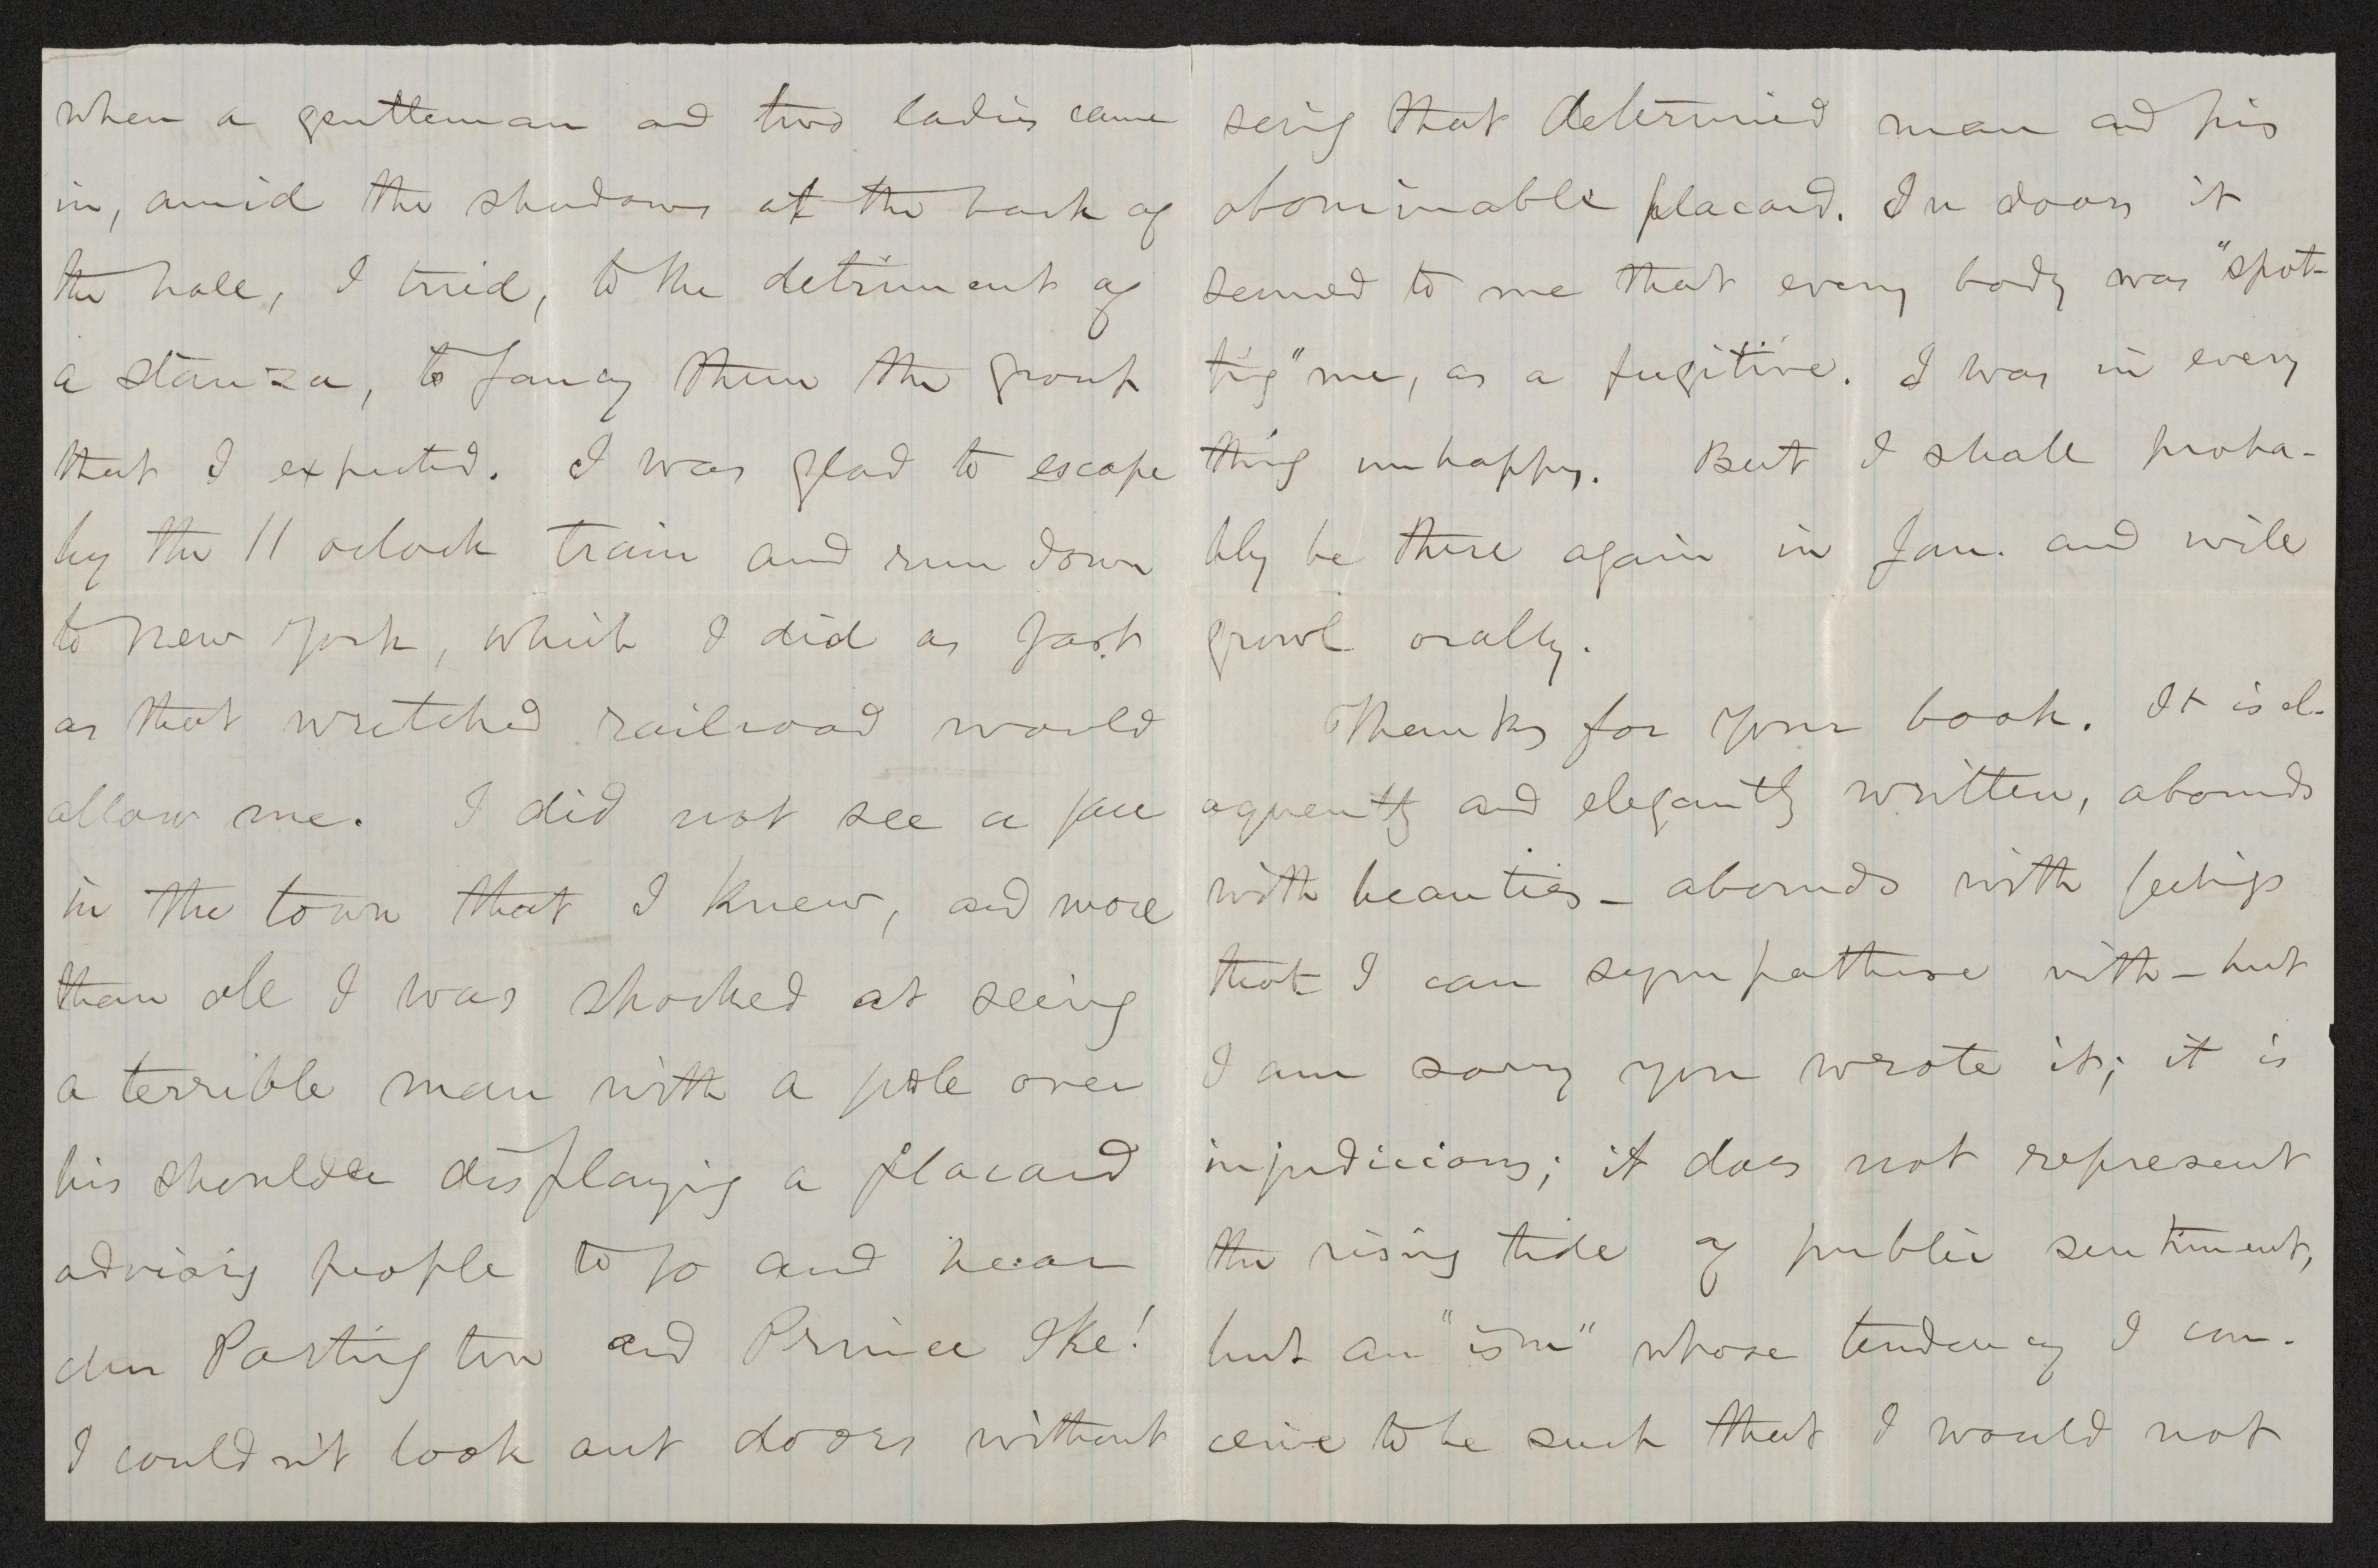 when a gentleman and two ladies came
in, amid the shadows at the back of
the hall, I tried, to the detriment of
a stanza, to fancy them the group
that I expected. I was glad to escape
by the 11 oclock train and run down
to New York, which I did as fast
as that wretched railroad would
allow me. I did not see a face
in the town that I knew, and more
than all I was shocked at seeing
a terrible man with a pole over
his shoulder displaying a placard
advising people to go and hear
Partington and Prince Ike!
I couldn't look out doors without
seeing that determined man and his
abominable placard. In doors it
seemed to me that every body was "spot-
ting" me, as a fugitive. I was in every
thing unhappy. But I shall proba-
bly be there again in Jan. and will
growl orally.
Thanks for your book. It is el-
oquently and elegantly written, abounds
with beauties - abounds with feelings
that I can sympathise with - but
I am sorry you wrote it; it is
injudicious; it does not represent
the rising tide of public sentiment,
but an "ism" whose tendency I con-
ceive to be such that I would not